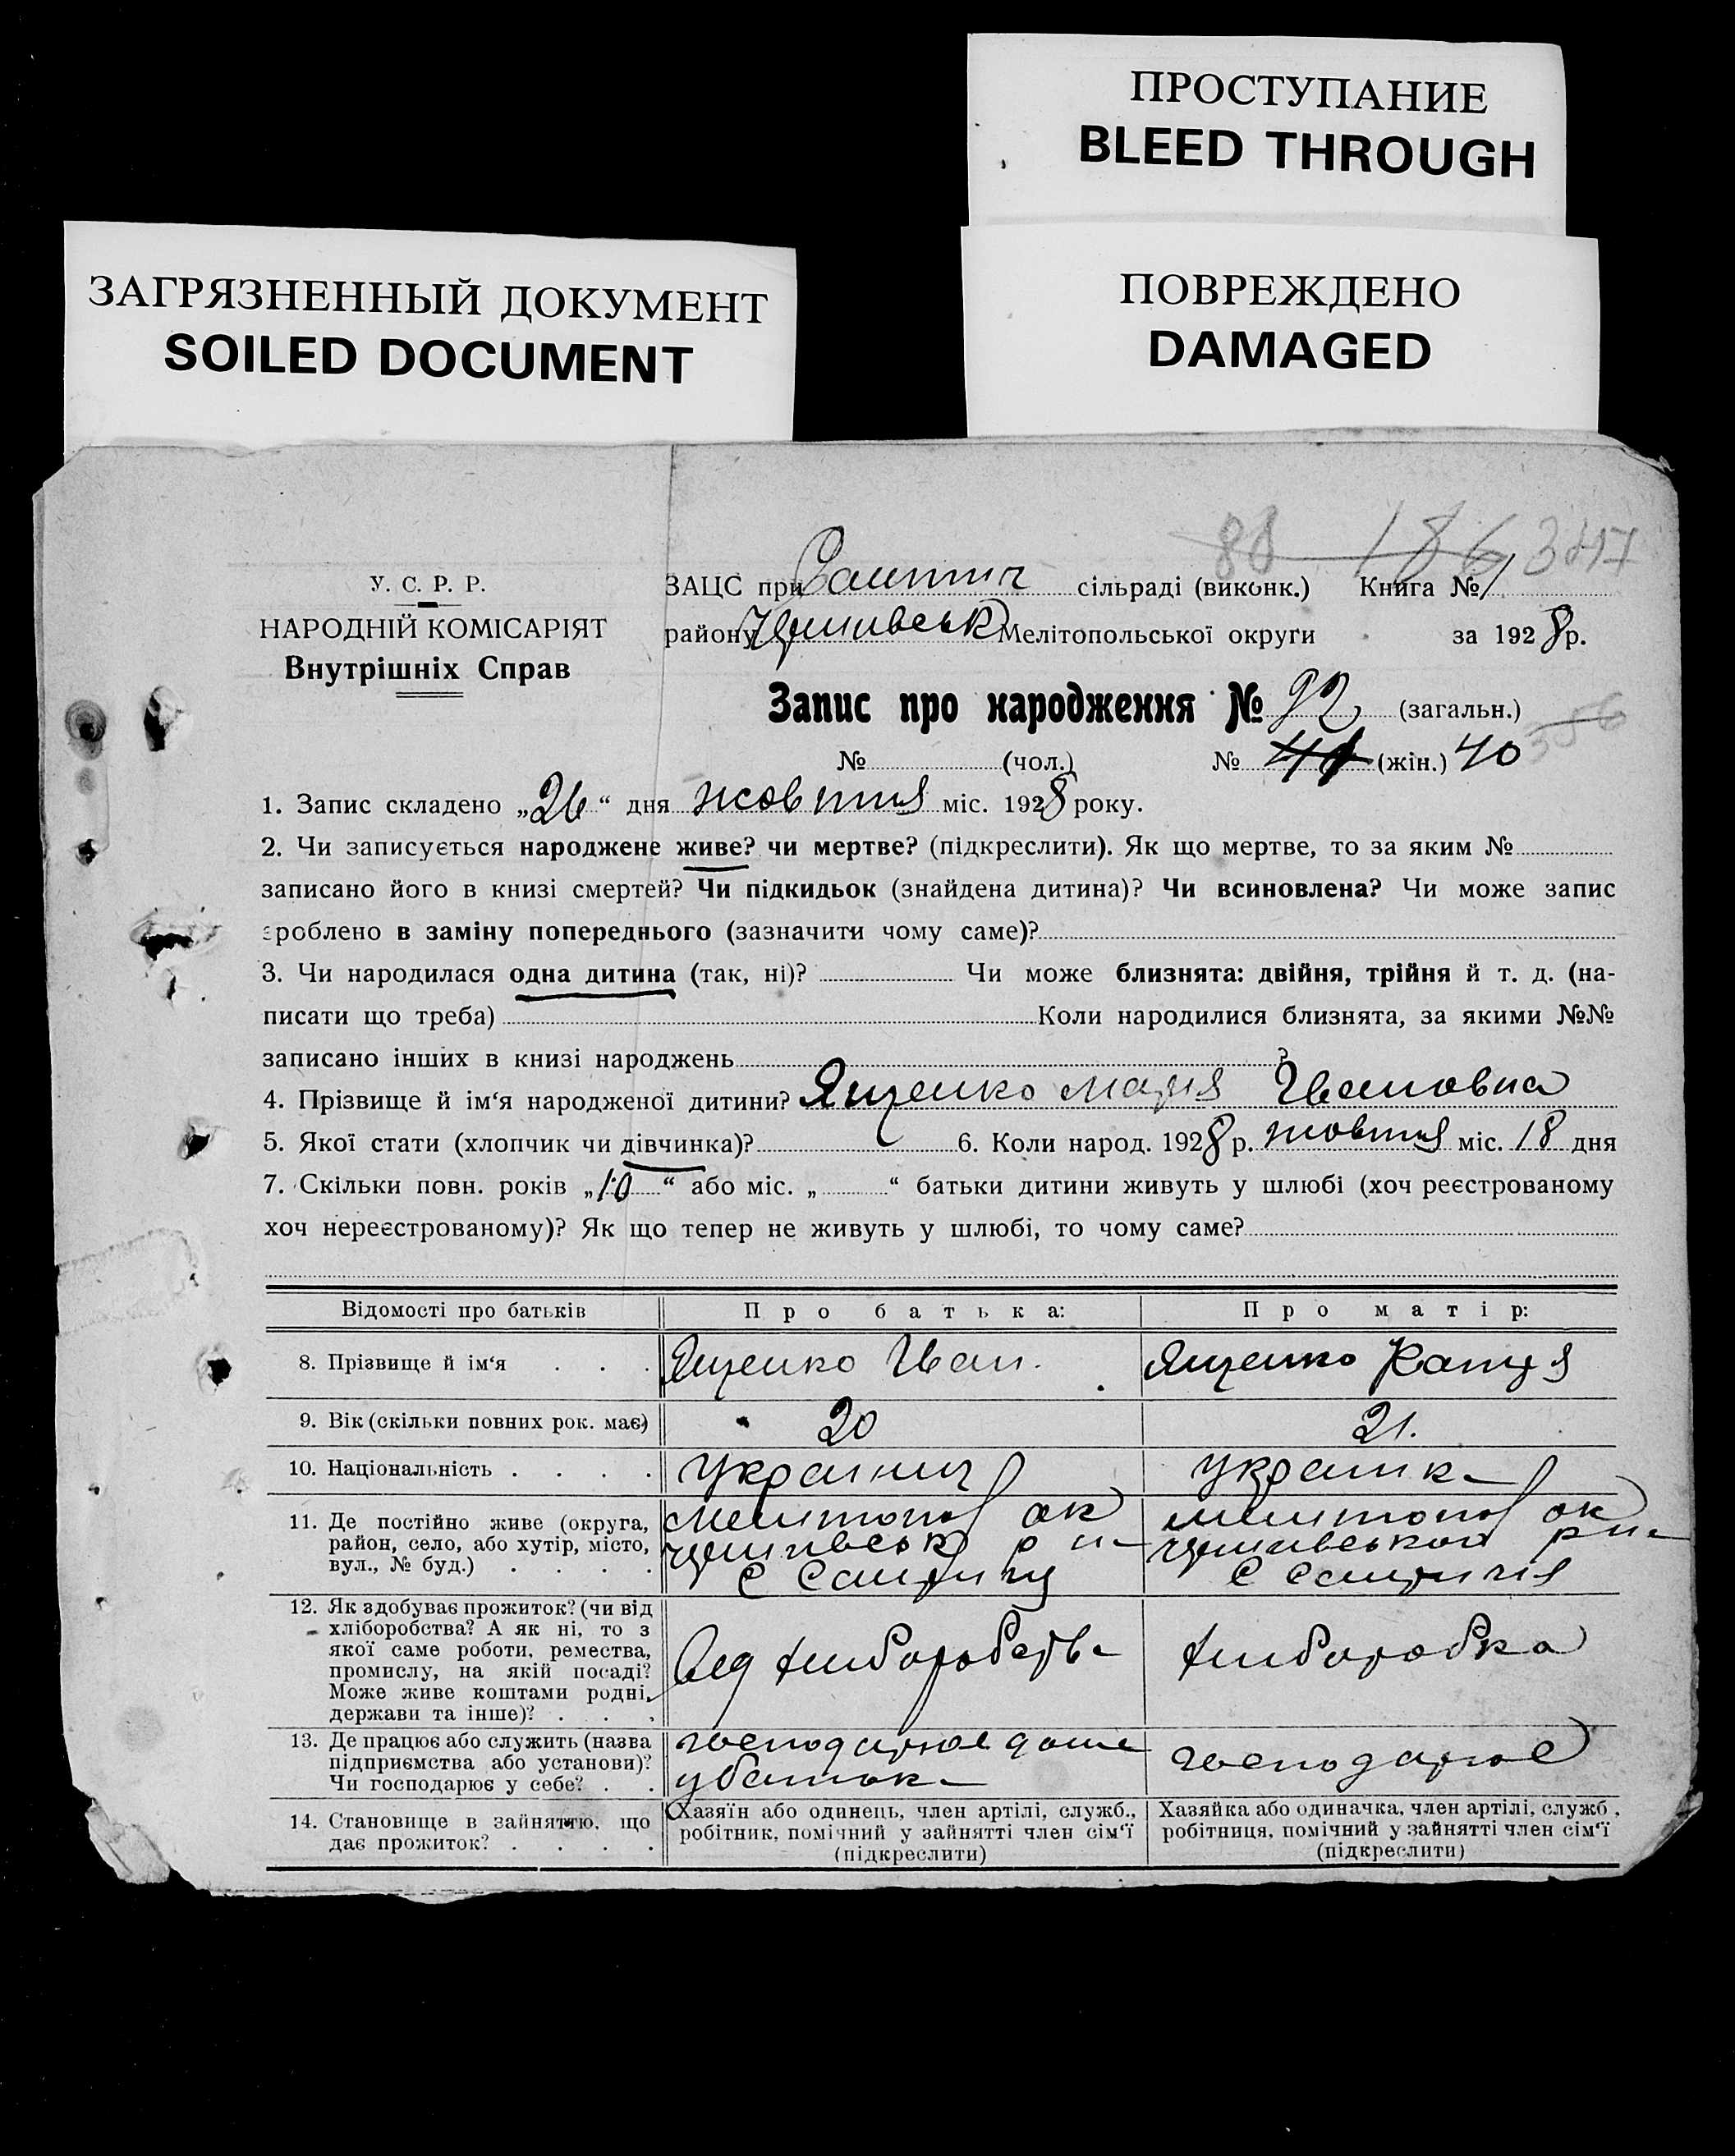 ПРОСТУПАНИЕ
BLEED THROUGH
ЗАГРЯЗНЕННЫЙ ДОКУМЕНТ
SOILED DOCUMENT
ПОВРЕЖДЕНО
DAMAGED
88 186 347
У. С. Р. Р.
НАРОДНІЙ КОМІСАРІЯТ
Внутрішніх Справ
ЗАЦС при сільраді (виконк.) Книга № 1
району Мелітопольської округи за 1928 р.
Запис про народження № 92 (загальн.)
356
№ (чол.) № 41 (жін.) 40
1. Запис складено „26“ дня жовтня міс. 1928 року.
2. Чи записується народжене живе? чи мертве? (підкреслити). Як що мертве, то за яким №
записано його в книзі смертей? Чи підкидьок (знайдена дитина)? Чи всиновлена? Чи може запис
зроблено в заміну попереднього (зазначити чому саме)?
3. Чи народилася одна дитина (так, ні)? Чи може близнята: двійня, трійня й т. д. (на-
писати що треба) Коли народилися близнята, за якими №№
записано інших в книзі народжень ?
4. Прізвище й ім‘я народженої дитини? Ященко Марія Івановна
5. Якої стати (хлопчик чи дівчинка)? 6. Коли народ. 1928 р. жовтня міс. 18 дня
7. Скільки повн. років „10“ або міс. „ “ батьки дитини живуть у шлюбі (хоч реєстрованому
хоч нереєстрованому)? Як що тепер не живуть у шлюбі, то чому саме?
Відомості про батьків Про батька: Про матір:
8. Прізвище й ім‘я . . . Ященко Іван. Ященко Катря
9. Вік (скільки повних рок. має) 20 21.
10. Національність . . . . Українец Українк
11. Де постійно живе (округа,
район, село, або хутір, місто,
вул., № буд.) . . . .
Мелитопол ок
р н
с
Мелитопол ок
р н
с
12. Як здобуває прожиток? (чи від
хліборобства? А як ні, то з
якої саме роботи, ремества,
промислу, на якій посаді?
Може живе коштами родні,
держави та інше)? . . .
Від хліборобств
хліборобка
13. Де працює або служить (назва
підприємства або установи)?
Чи господарює у себе? . .
господарює дома
у батьк
господарює
14. Становище в зайняттю, що
дає прожиток? . . . .
Хазяїн або одинець, член артілі, служб.,
робітник, помічний у зайнятті член сім‘ї
(підкреслити)
Хазяйка або одиначка, член артілі, служб.,
робітниця, помічний у зайнятті член сім‘ї
(підкреслити)